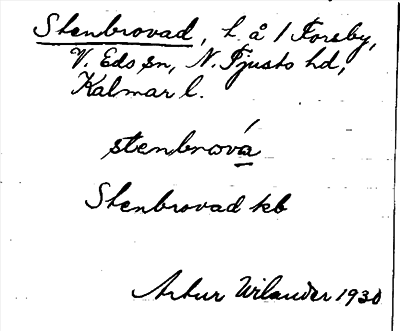 Stenbrovad, l. å 1 Forsby,
V. Eds sn, N. Tjusts hd,
Kalmar l.
stenbrová
Stenbrovad kb
Artur Wilander 1930